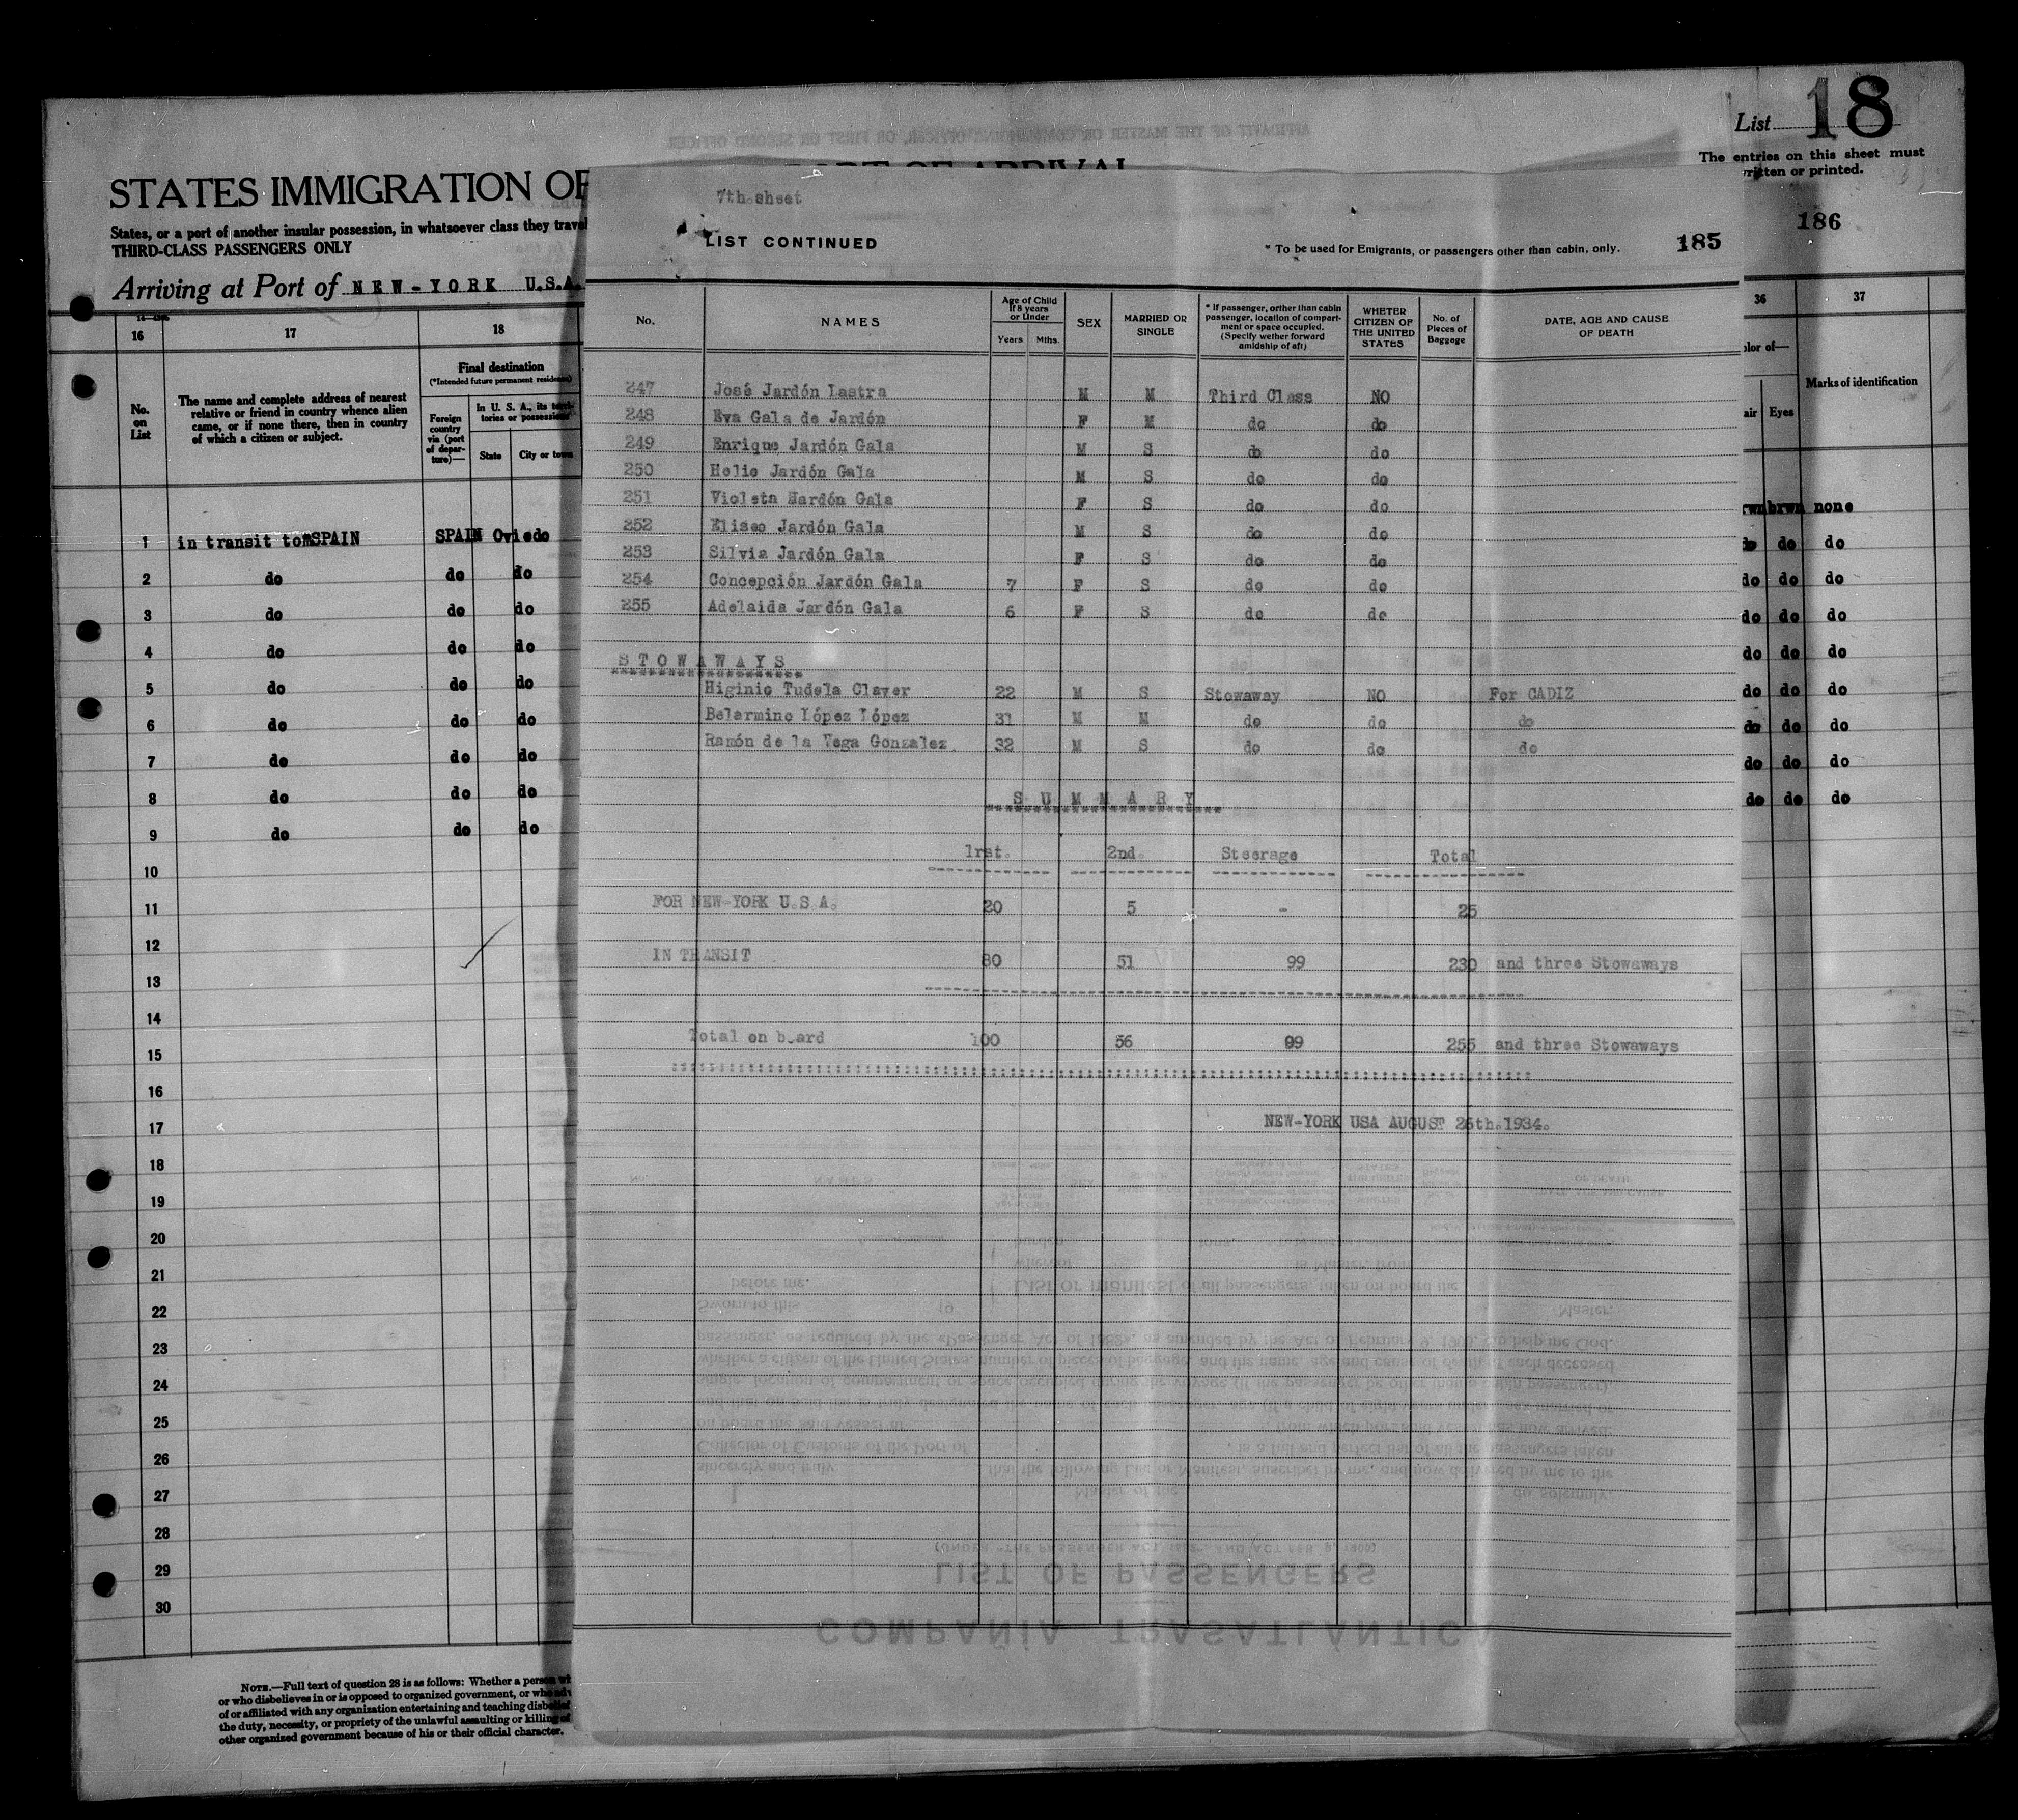 List 18
The entries on this sheet must
written or printed.
186
STATES IMMIGRATION OF
States, or a port of another insular possession, in whatsoever class they travel
THIRD-CLASS PASSENGERS ONLY
Arriving at Port of NEW-YORK U.S.A.
16 17 18
No. on List
The name and complete address of nearest
relative or friend in country whence alien
came, or if none there, then in country
of which a citizen or subject.
Final destination
(*Intended future permanent residence)
Foreign country via (port of departure)—
In U. S. A., its territories or possessions
State
City or town
1 in transit to SPAIN SPAIN Oviedo
2 do do do
3 do do do
4 do do do
5 do do do
6 do do do
7 do do do
8 do do do
9 do do do
10
11
12
13
14
15
16
17
18
19
20
21
22
23
24
25
26
27
28
29
30
NOTE.—Full text of question 28 is as follows: Whether a person
or who disbelieves in or is opposed to organized government, or who
of or affiliated with any organization entertaining and teaching disbelief
the duty, necessity, or propriety of the unlawful assaulting or killing of
other organized government because of his or their official character.
7th.sheet
LIST CONTINUED
* To be used for Emigrants, or passengers other than cabin, only.
185
No.
NAMES
Age of Child
If 8 years
or Under
Years Mths.
SEX
MARRIED OR
SINGLE
* If passenger, orther than cabin
passenger, location of compart-
ment or space occupied.
(Specify wether forward
amidship of aft)
WHETER
CITIZEN OF
THE UNITED
STATES
No. of
Pieces of
Baggage
DATE, AGE AND CAUSE
OF DEATH
247 José Jardón Lastra M M Third Class NO
248 Eva Gala de Jardón F M do do
249 Enrique Jardón Gala M S do do
250 Helio Jardón Gala M S do do
251 Violeta Hardón Gala F S do do
252 Eliseo Jardón Gala M S do do
253 Silvia Jardón Gala F S do do
254 Concepción Jardón Gala 7 F S do do
255 Adelaida Jardón Gala 6 F S do do
STOWAWAYS
Higinio Tudela Claver 22 M S Stowaway NO For CADIZ
Belarmino López López 31 M M do do do
Ramón de la Vega Gonzalez 32 M S do do do
SUMMARY
1rst. 2nd. Steerage Total
FOR NEW-YORK U.S.A. 20 5 - 25
IN TRANSIT 80 51 99 230 and three Stowaways
Total on board 100 56 99 255 and three Stowaways
NEW-YORK USA AUGUST 26th.1934.
36 37
Eyes
Marks of identification
brwn none
do do do
do do do
do do do
do do do
do do do
do do do
do do do
do do do
COMPAÑÍA TRASATLÁNTICA
LIST OF PASSENGERS